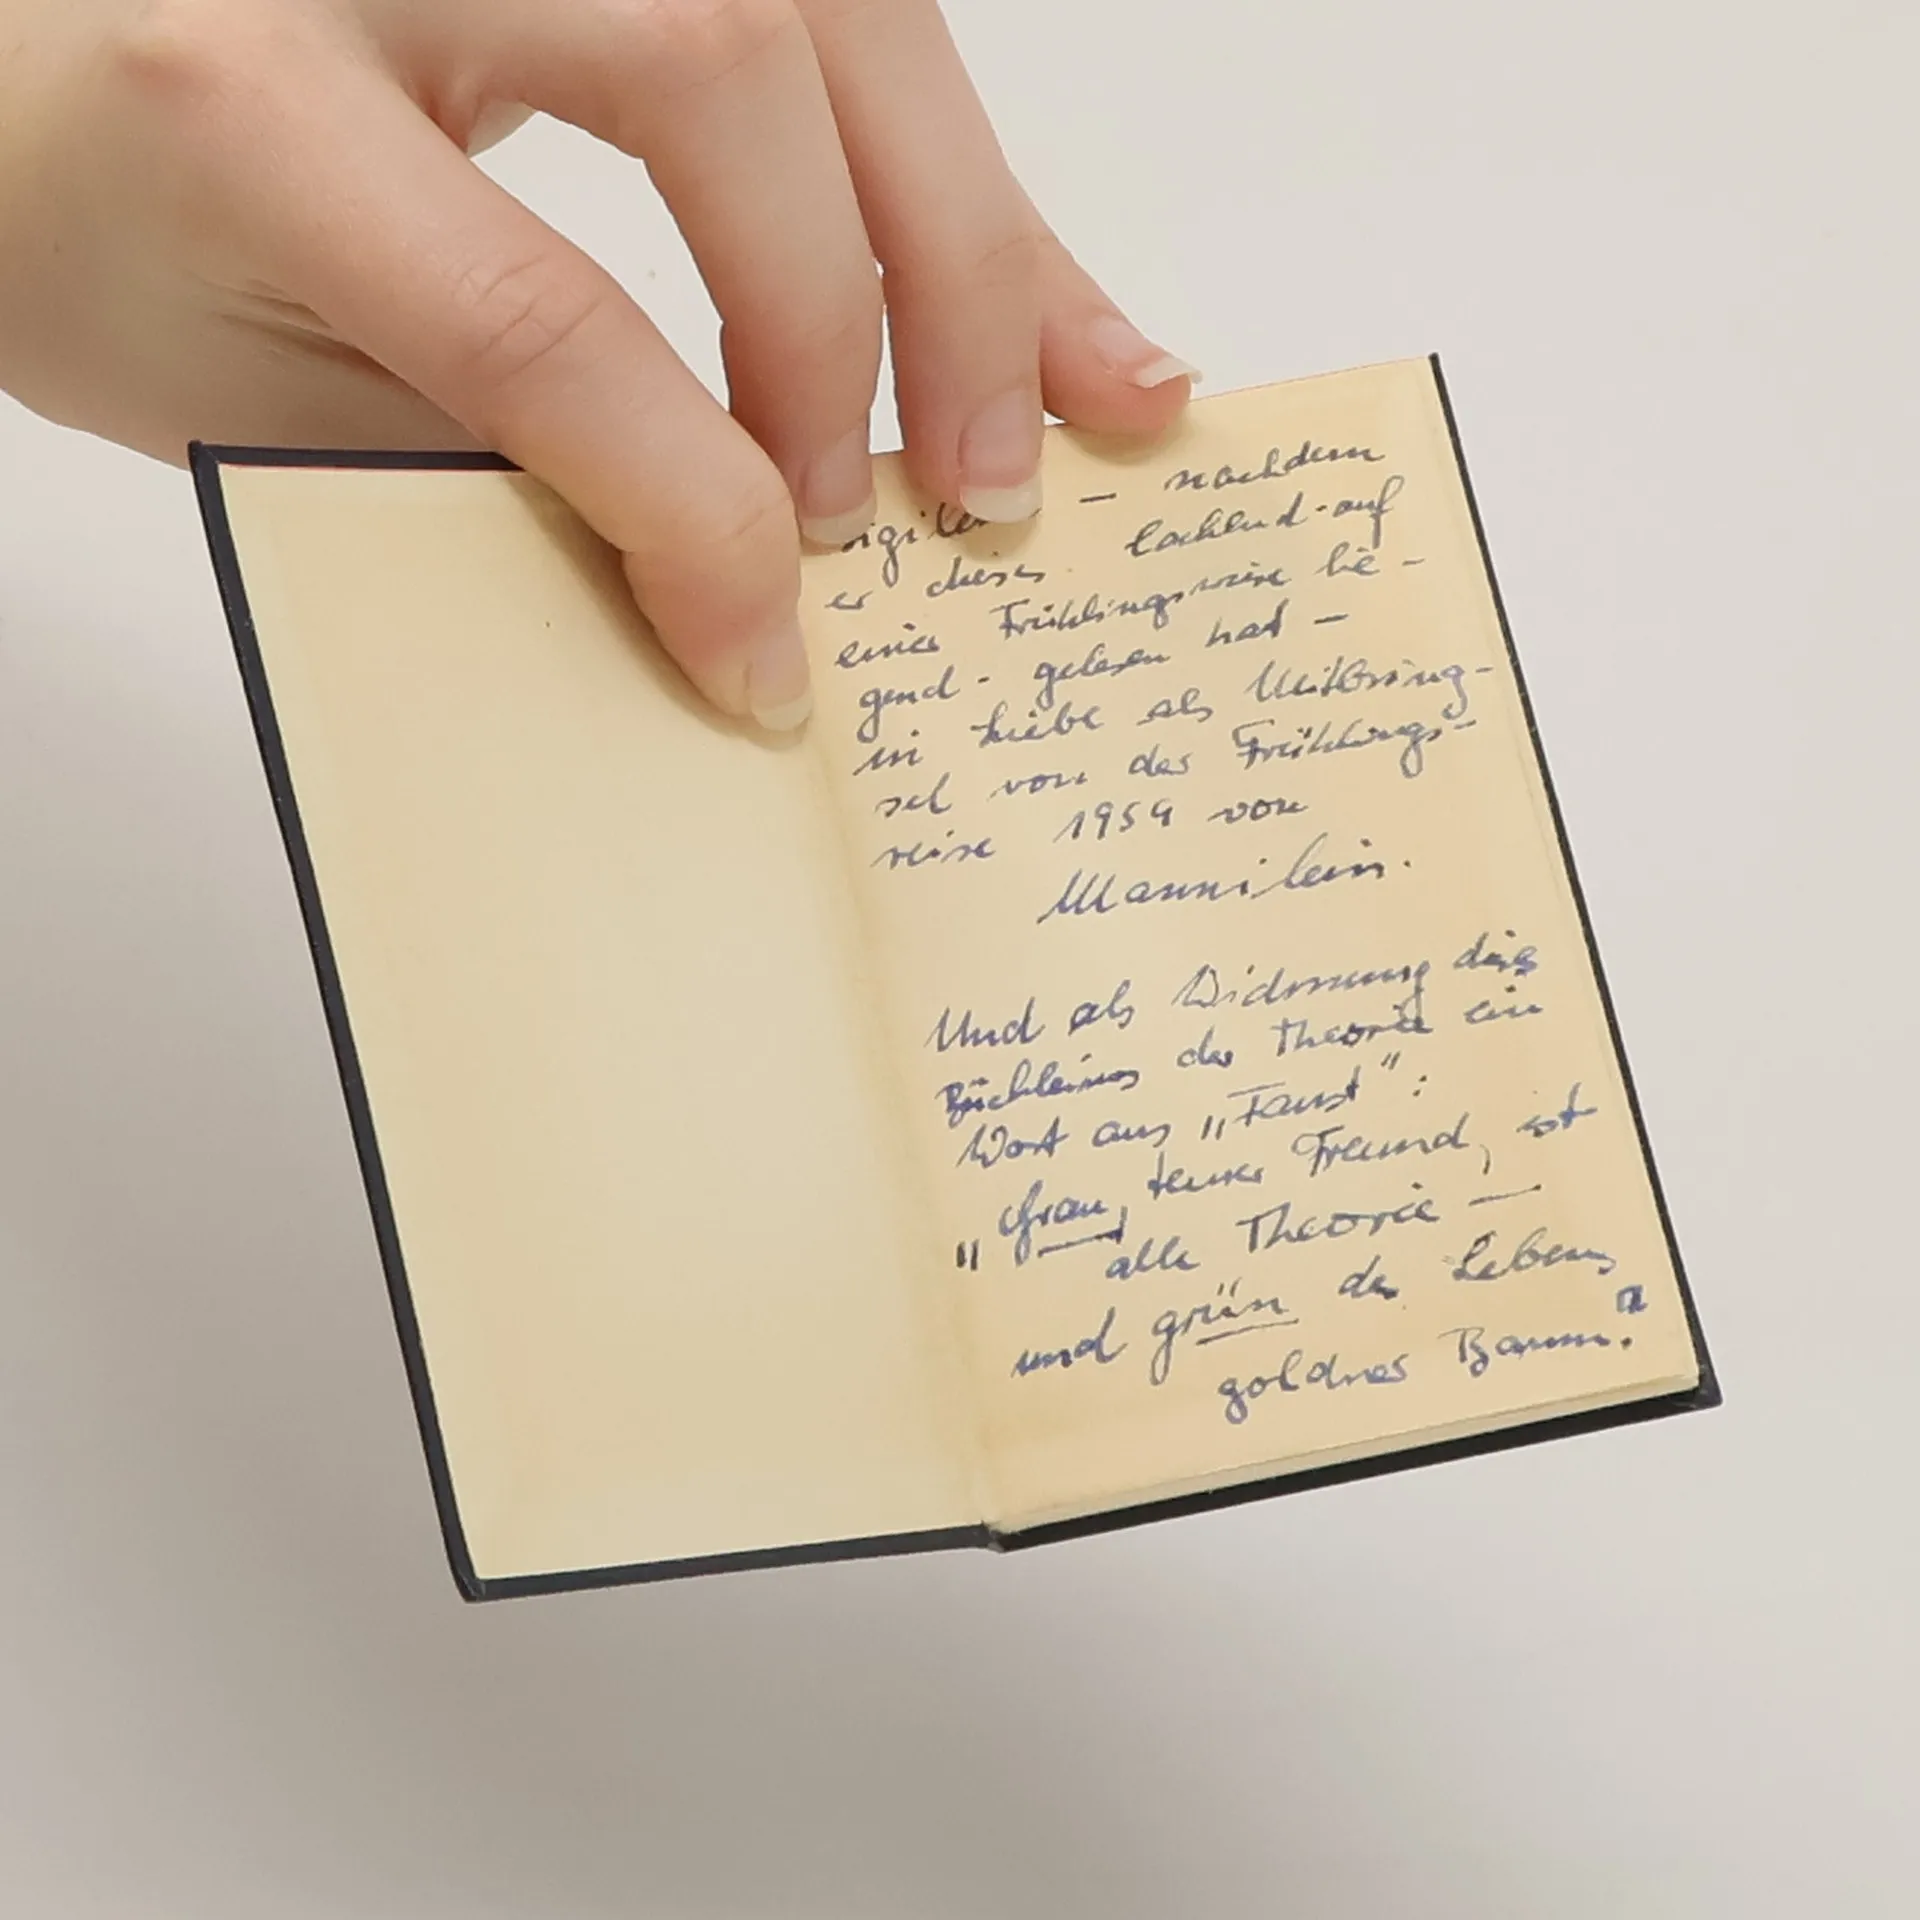 – nachdem
er dieses lachend-auf
einer Frühlingswiese lie-
gend- gelesen hat –
in Liebe als Mitbring-
sel von der Frühlings-
reise 1959 von
Mannilein.
Und als Widmung dies
Büchleins der Theorie ein
Wort aus „Faust":
„Grau, teurer Freund, ist
alle Theorie —
und grün des Lebens
goldner Baum."